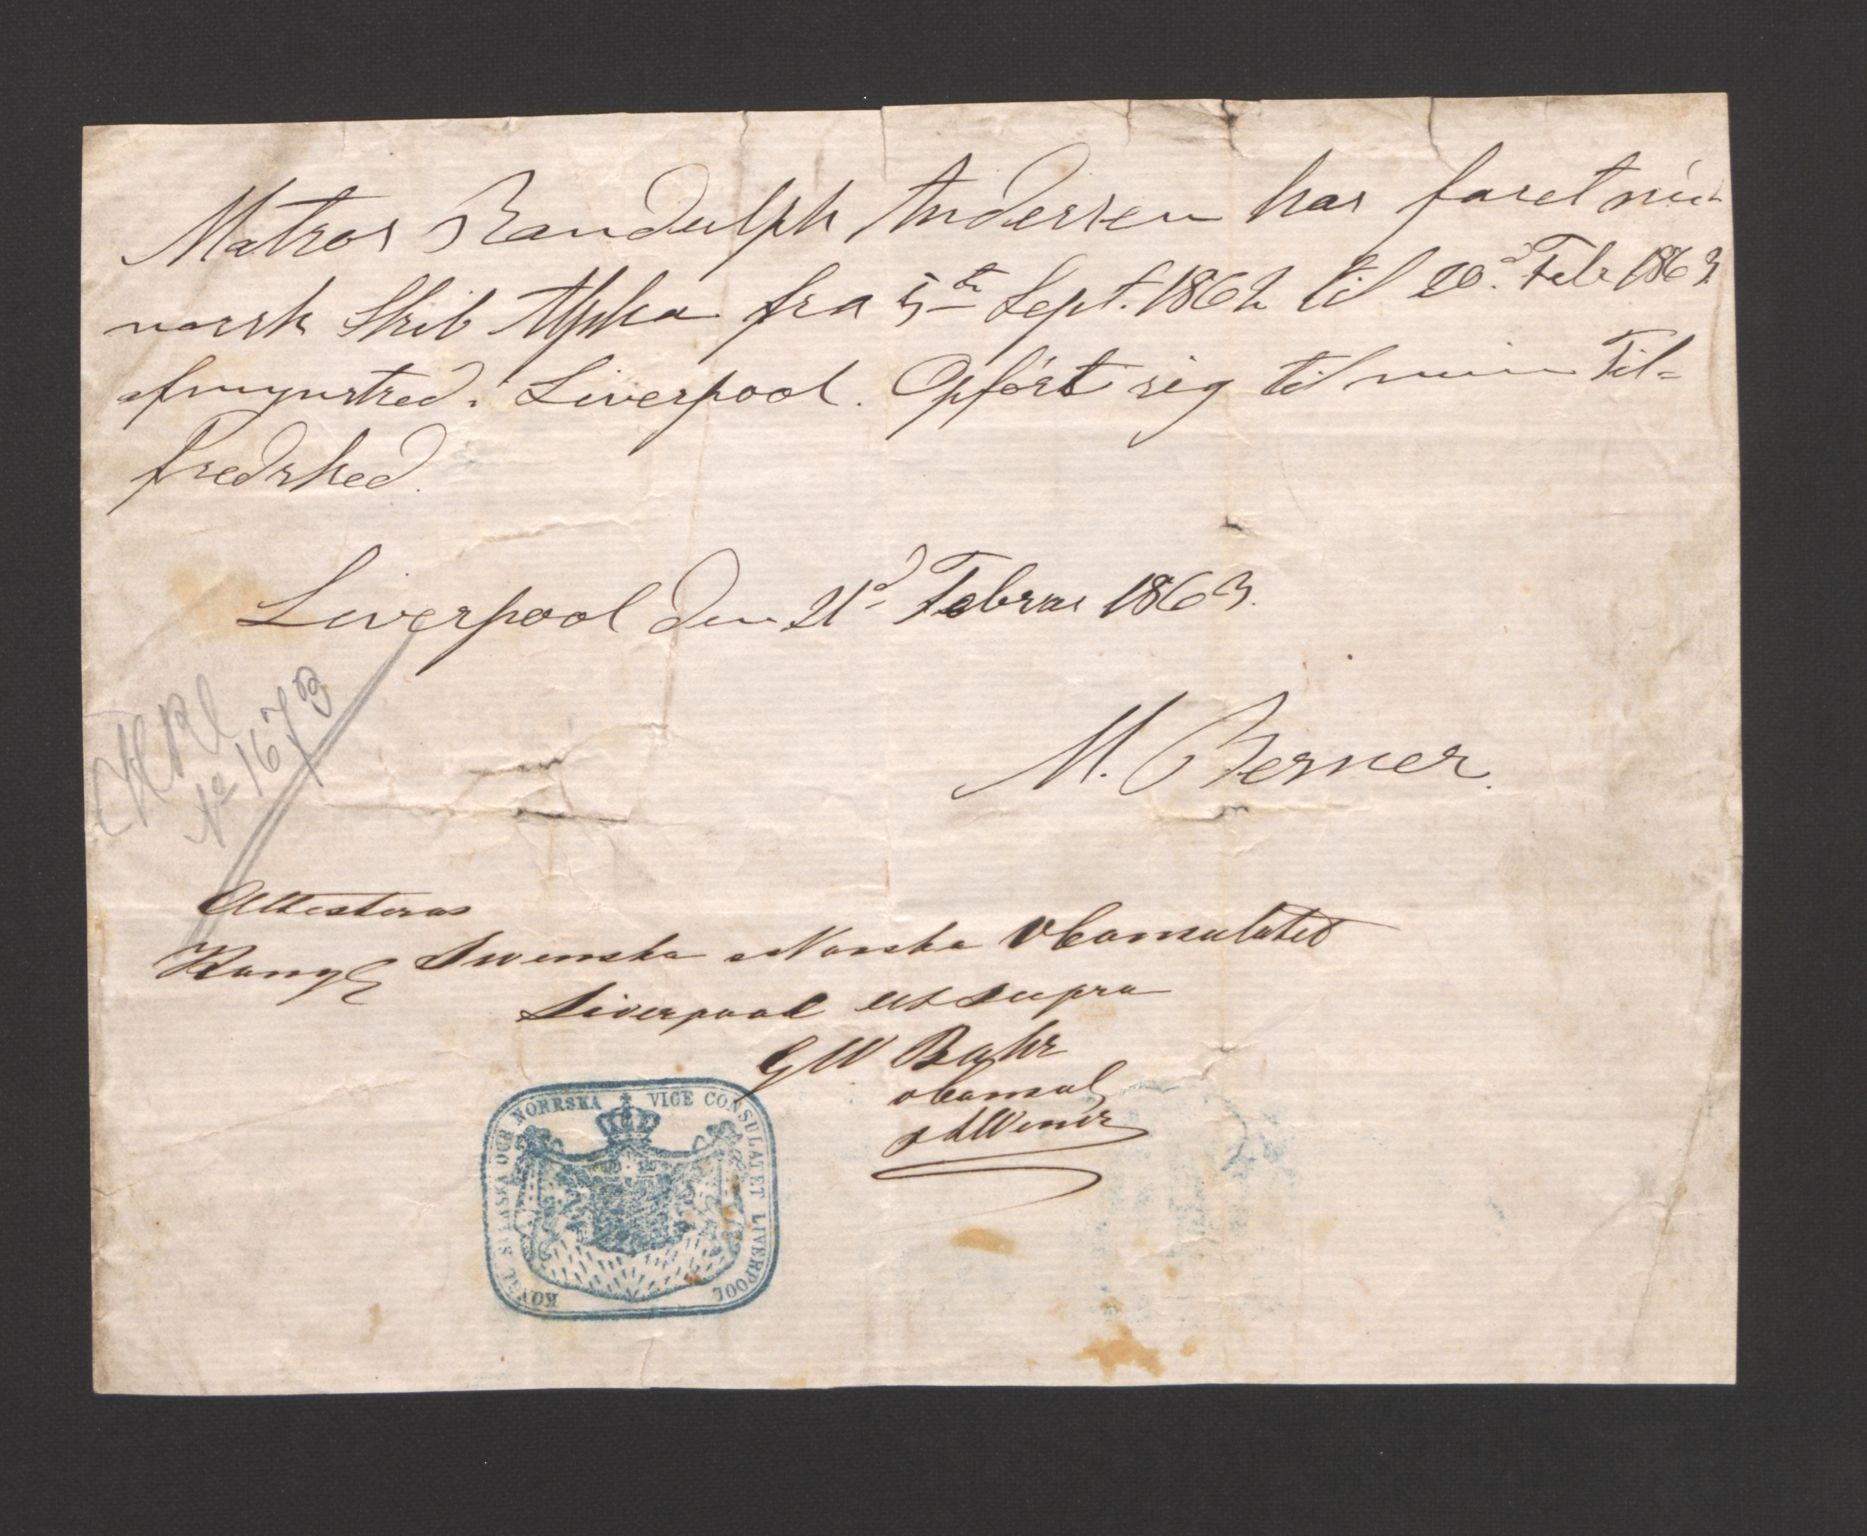 Matros Randulph Andersen har faret med
norsk Skib Alpha fra 5te Sept. 1862 til 20d Febr 1863
afmynstred i Liverpool. Opfört sig til min Til=
fredshed.
Liverpool den 21d Februar 1863.
M. Berner.
No 1673
Attesteras
Kongl Swenska o Norska vConsulatet
Liverpool ut supra
GW Bahr
vConsul
KONGL SVENSKA OCH NORRSKA VICE CONSULATET LIVERPOOL